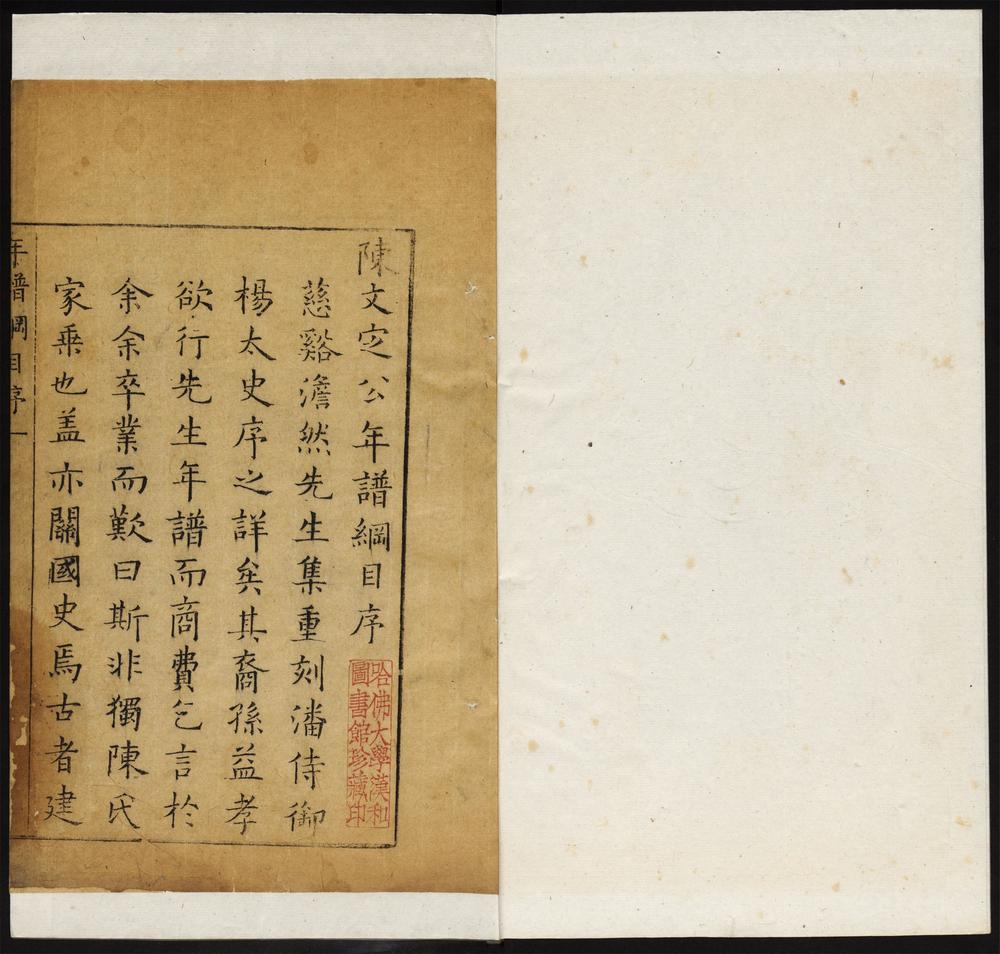 陳文定公年譜綱目序
慈谿澹然先生集重刻潘侍御
楊太史序之詳矣其裔孫益孝
欲行先生年譜而商費乞言於
余余卒業而歎曰斯非獨陳氏
家乗也盖亦關國史焉古者建
年譜綱目序一
哈佛大學漢和
圖書館珍藏印